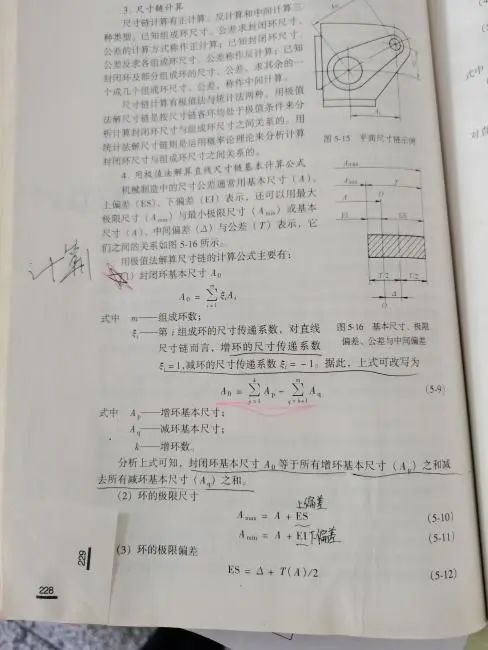 3. 尺寸链计算
尺寸链计算有正计算、反计算和中间计算三
种类型。已知组成环尺寸、公差求封闭环尺寸、
公差的计算方式称作正计算；已知封闭环尺寸、
公差反求各组成环尺寸、公差称作反计算；已知
封闭环及部分组成环的尺寸、公差，求其余的一
个或几个组成环尺寸、公差，称作中间计算。
尺寸链计算有极值法与统计法两种。用极值
法解尺寸链是按尺寸链各环均处于极值条件来分
析计算封闭环尺寸与组成环尺寸之间关系的。用
统计法解尺寸链则是运用概率论理论来分析计算
封闭环尺寸与组成环尺寸之间关系的。
A₁
图 5-15 平面尺寸链示例
4. 用极值法解算直线尺寸链基本计算公式
机械制造中的尺寸公差通常用基本尺寸（A）、
上偏差（ES）、下偏差（EI）表示，还可以用最大
极限尺寸（Amax）与最小极限尺寸（Amin）或基本
尺寸（A）、中间偏差（Δ）与公差（T）表示，它
们之间的关系如图 5-16 所示。
用极值法解算尺寸链的计算公式主要有：
计算
（1）封闭环基本尺寸 A₀
A₀ = ∑ᵢ₌₁ᵐ ξᵢAᵢ
Amax
Amin T
A O
EI ES
T/2 T/2
O Δ
图 5-16 基本尺寸、极限
偏差、公差与中间偏差
式中 m——组成环数；
ξᵢ——第 i 组成环的尺寸传递系数，对直线
尺寸链而言，增环的尺寸传递系数
ξᵢ=1，减环的尺寸传递系数 ξᵢ=－1。据此，上式可改写为
A₀ = ∑ₚ₌₁ᵏ Aₚ － ∑q₌ₖ₊₁ᵐ Aq (5-9)
式中 Aₚ——增环基本尺寸；
Aq——减环基本尺寸；
k——增环数。
分析上式可知，封闭环基本尺寸 A₀ 等于所有增环基本尺寸（Aₚ）之和减
去所有减环基本尺寸（Aq）之和。
（2）环的极限尺寸
上偏差
Amax = A + ES (5-10)
Amin = A + EI 下偏差 (5-11)
（3）环的极限偏差
ES = Δ + T(A)/2 (5-12)
229
228